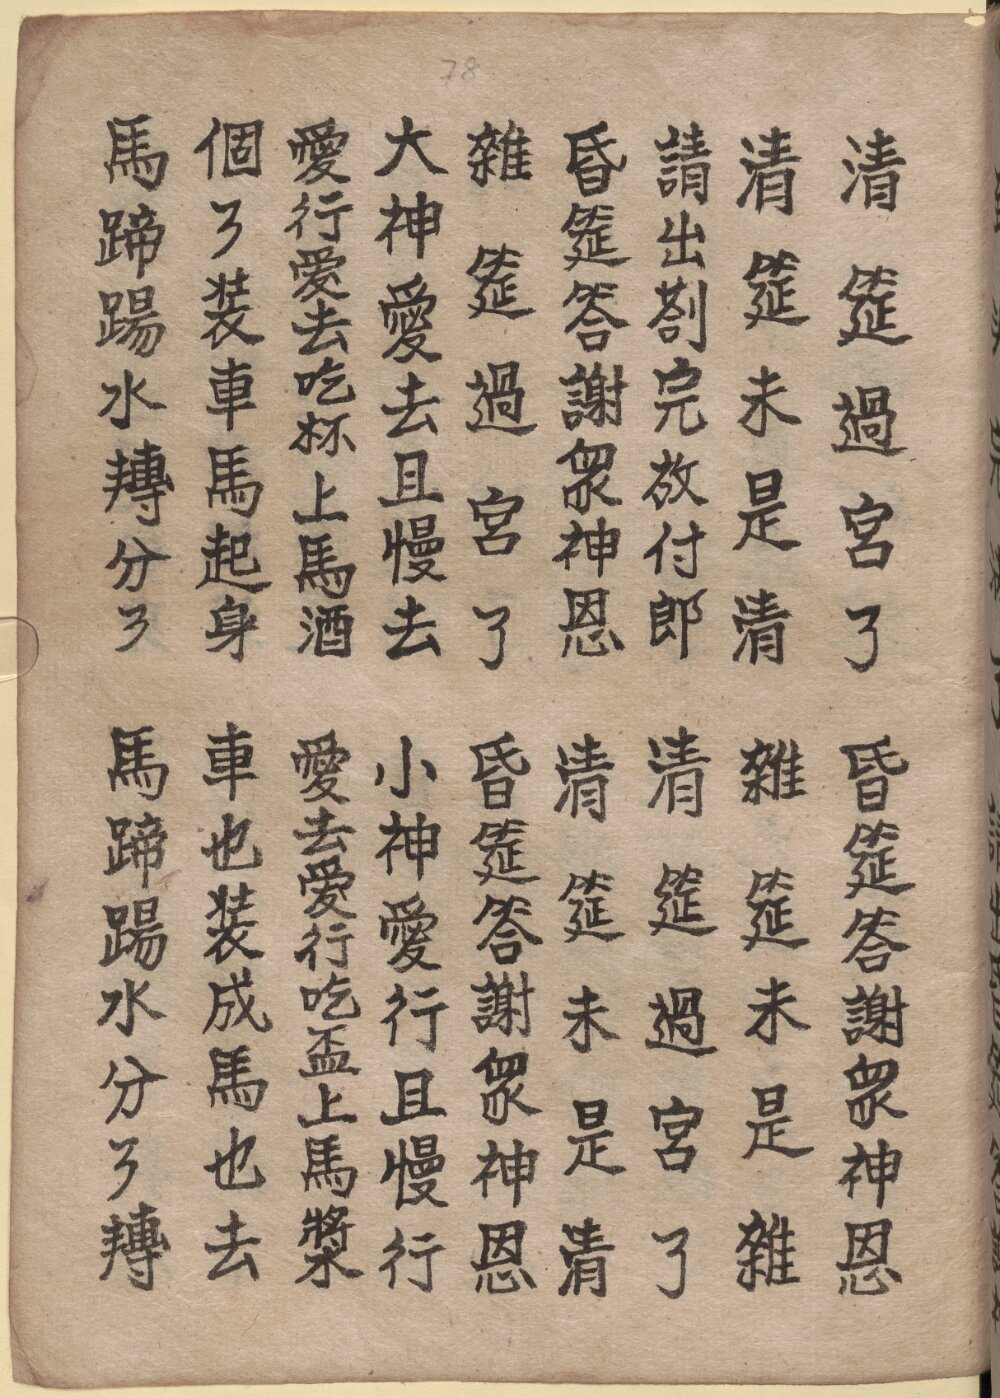 78
清筵過宮了 昏筵答謝衆神恩
清筵未是清 雜筵未是雜
請出劄完放付郎 清筵過宮了
昏筵答謝衆神恩 清筵未是清
雜筵過宮了 昏筵答謝衆神恩
大神愛去且慢去 小神愛行且慢行
愛行愛去吃杯上馬酒 愛去愛行吃盃上馬漿
個了装車馬起身 車也装成馬也去
馬蹄踢水轉分了 馬蹄踢水分了轉